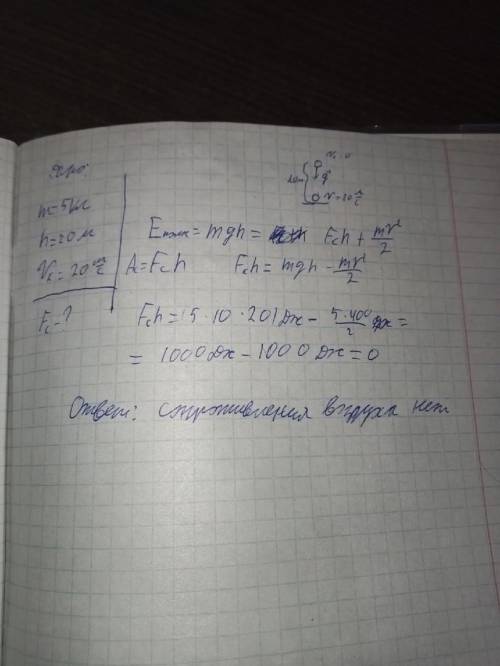 Дано:
m=5кг
h=20м
Vк=20 м/с
Fс-?
V₀=0
20м
g
V=20 м/с
Eпот = mgh = Fсh + mv²/2
A=Fсh Fсh = mgh - mv²/2
Fсh = (5·10·20)Дж - 5·400/2 Дж =
= 1000Дж - 1000Дж = 0
Ответ: сопротивления воздуха нет